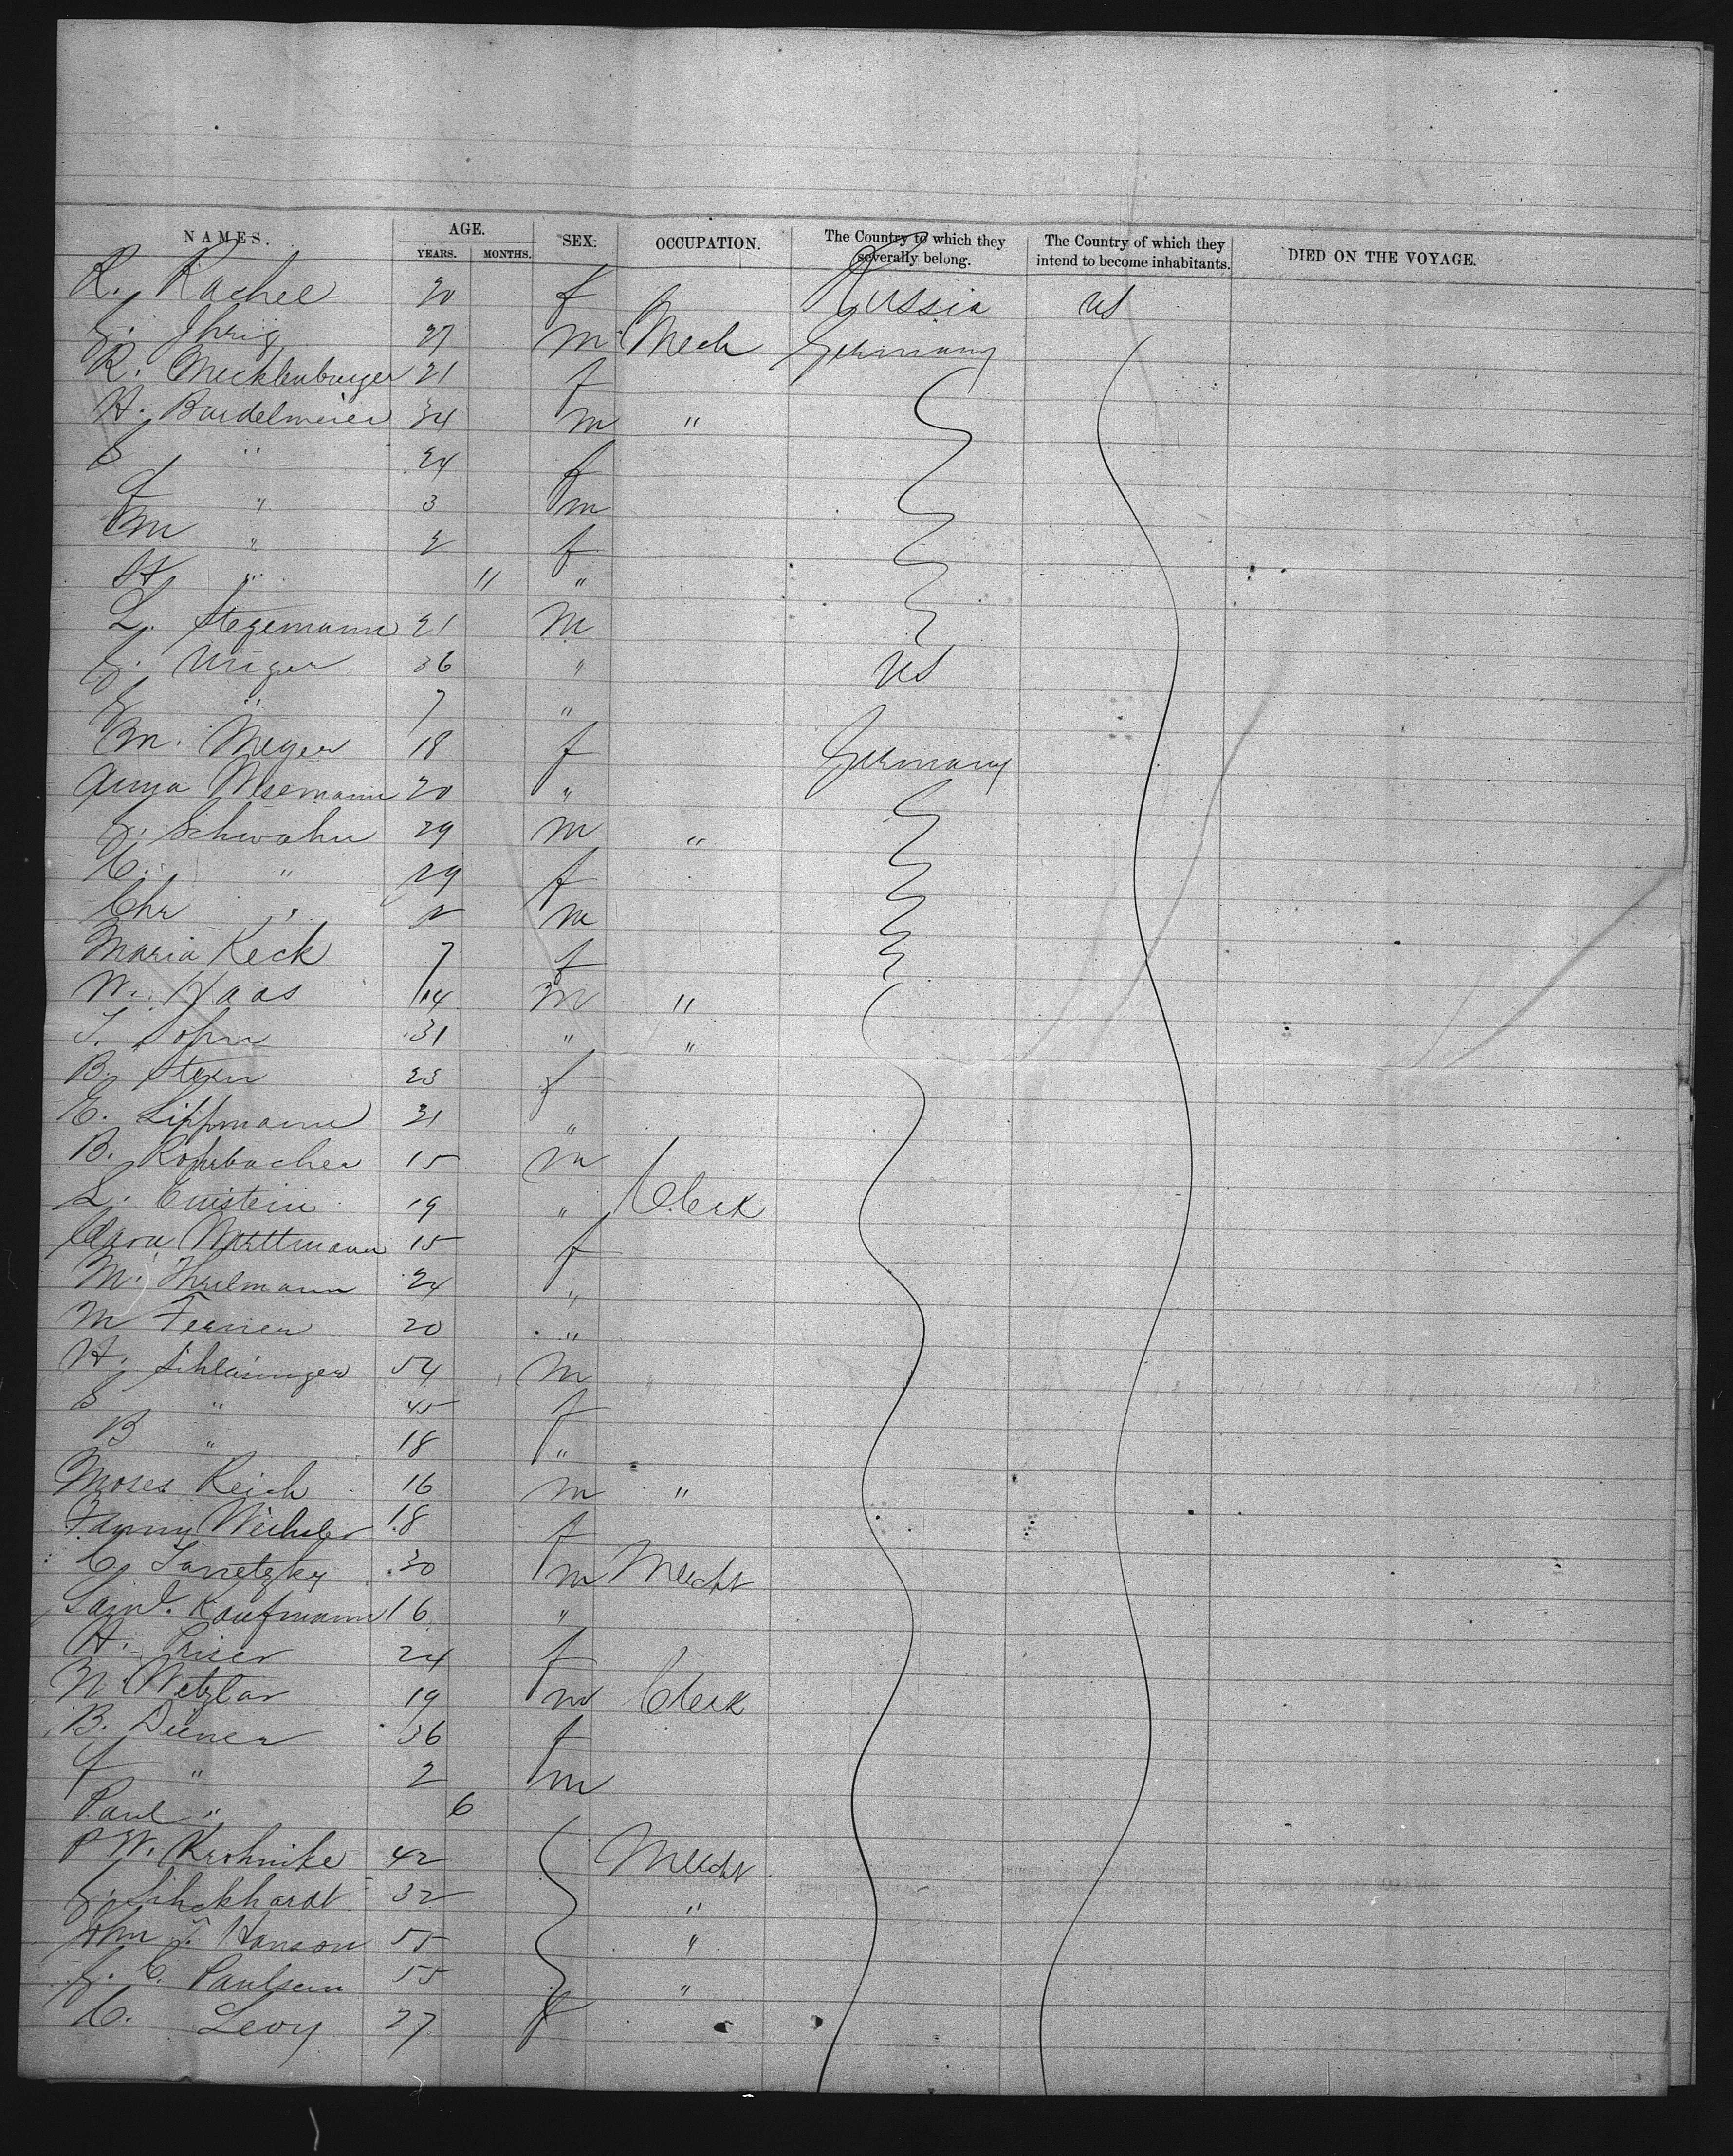 NAMES. AGE. SEX. OCCUPATION. The Country to which they severally belong. The Country of which they intend to become inhabitants. DIED ON THE VOYAGE.
YEARS. MONTHS.
R. Rachel 20 f Russia US
J. Ihrig 27 m Mech Germany
R. Mecklenburger 21 f
H. Bardelmeier 34 m "
S " 24 f
J " 3 m
M " 2 f
H " 11 "
L. Stegemann 21 m
J. Unger 36 " US
J " 7 "
M. Meyer 18 f Germany
Anna Wesemann 20 "
J. Schwahn 29 m "
C. " 29 f
Chr " 2 m
Maria Keck 7 f
W. Haas 14 m "
T. Sohm 31 " "
B. Stern 23 f
E. Lippmann 21 "
B. Rohrbacher 15 m
L. Einstein 19 " Clerk
Clara 15 f
M. 24 "
M 20 "
H. Schlesinger 54 m
S " 45 f
B " 18 "
Moses Reich 16 m "
Fanny Wechsler 18 f
C. 30 m Mercht
Saml. Kaufmann 16 "
H. 24 f
N. Wetzlar 19 m Clerk
B. Diener 36 f
J " 2 m
Paul " 6
P W. Krohnike 42 Mercht
J. Schckhardt 32 "
John T. Hanson 55 "
J. C. Paulsen 55 "
C. Levy 27 f